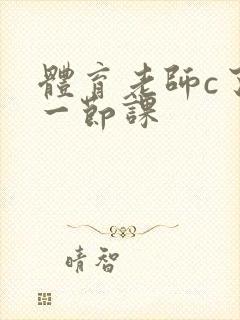 體育老師c了
一節課
晴智